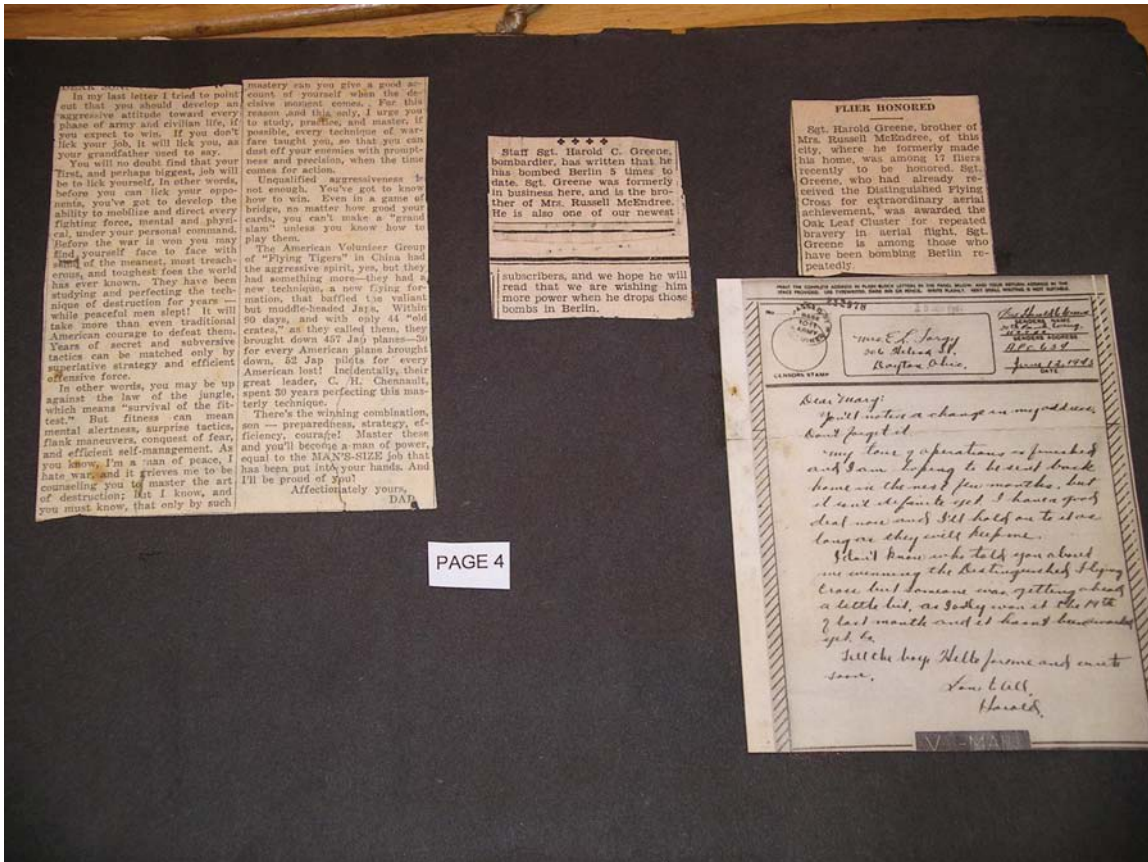 DEAR SON
In my last letter I tried to point
out that you should develop an
aggressive attitude toward every
phase of army and civilian life, if
you expect to win. If you don't
lick your job, it will lick you, as
your grandfather used to say.
You will no doubt find that your
first, and perhaps biggest, job will
be to lick yourself. In other words,
before you can lick your oppo-
nents, you've got to develop the
ability to mobilize and direct every
fighting force, mental and physi-
cal, under your personal command.
Before the war is won you may
find yourself face to face with
some of the meanest, most treach-
erous, and toughest foes the world
has ever known. They have been
studying and perfecting the tech-
nique of destruction for years —
while peaceful men slept! It will
take more than even traditional
American courage to defeat them.
Years of secret and subversive
tactics can be matched only by
superlative strategy and efficient
offensive force.
In other words, you may be up
against the law of the jungle,
which means "survival of the fit-
test." But fitness can mean
mental alertness, surprise tactics,
flank maneuvers, conquest of fear,
and efficient self-management. As
you know, I'm a man of peace, I
hate war, and it grieves me to be
counseling you to master the art
of destruction; but I know, and
you must know, that only by such
mastery can you give a good ac-
count of yourself when the de-
cisive moment comes. For this
reason and this only, I urge you
to study, practice, and master, if
possible, every technique of war-
fare taught you, so that you can
dust off your enemies with prompt-
ness and precision, when the time
comes for action.
Unqualified aggressiveness is
not enough. You've got to know
how to win. Even in a game of
bridge, no matter how good your
cards, you can't make a "grand
slam" unless you know how to
play them.
The American Volunteer Group
of "Flying Tigers" in China had
the aggressive spirit, yes, but they
had something more—they had a
new technique, a new flying for-
mation, that baffled the valiant
but muddle-headed Japs. Within
90 days, and with only 44 "old
crates," as they called them, they
brought down 457 Jap planes—30
for every American plane brought
down, 52 Jap pilots for every
American lost! Incidentally, their
great leader, C. H. Chennault,
spent 30 years perfecting this mas-
terly technique.
There's the winning combination,
son — preparedness, strategy, ef-
ficiency, courage! Master these
and you'll become a man of power,
equal to the MAN'S-SIZE job that
has been put into your hands. And
I'll be proud of you!
Affectionately yours,
DAD
Staff Sgt. Harold C. Greene,
bombardier, has written that he
has bombed Berlin 5 times to
date. Sgt. Greene was formerly
in business here, and is the bro-
ther of Mrs. Russell McEndree.
He is also one of our newest
subscribers, and we hope he will
read that we are wishing him
more power when he drops those
bombs in Berlin.
FLIER HONORED
Sgt. Harold Greene, brother of
Mrs. Russell McEndree, of this
city, where he formerly made
his home, was among 17 fliers
recently to be honored. Sgt.
Greene, who had already re-
ceived the Distinguished Flying
Cross for extraordinary aerial
achievement, was awarded the
Oak Leaf Cluster for repeated
bravery in aerial flight. Sgt.
Greene is among those who
have been bombing Berlin re-
peatedly.
PRINT THE COMPLETE ADDRESS IN PLAIN BLOCK LETTERS IN THE PANEL BELOW, AND YOUR RETURN ADDRESS IN THE
SPACE PROVIDED. USE TYPEWRITER, DARK INK OR PENCIL. WRITE PLAINLY. VERY SMALL WRITING IS NOT SUITABLE.
No.
PASSED BY
BASE
1011
ARMY
CENSOR'S STAMP
Mrs. E. L.
Dayton Ohio.
SENDER'S NAME
SENDER'S ADDRESS
A.P.O. 634
June 12, 194
DATE
Dear Mary:
You'll notice a change in my address,
Don't forget it.
My tour of operations is finished
and I am hoping to be sent back
home in the next few months, but
it isn't definite yet. I have a good
deal now and I'll hold on to it as
long as they will keep me.
I don't know who told you about
me winning the Distinguished Flying
Cross but someone was getting ahead
a little bit, as I only won it the 19th
of last month and it hasn't been awarded
yet.
Tell the boys Hello for me and write
soon.
Love to All,
Harold.
V-MAIL
PAGE 4